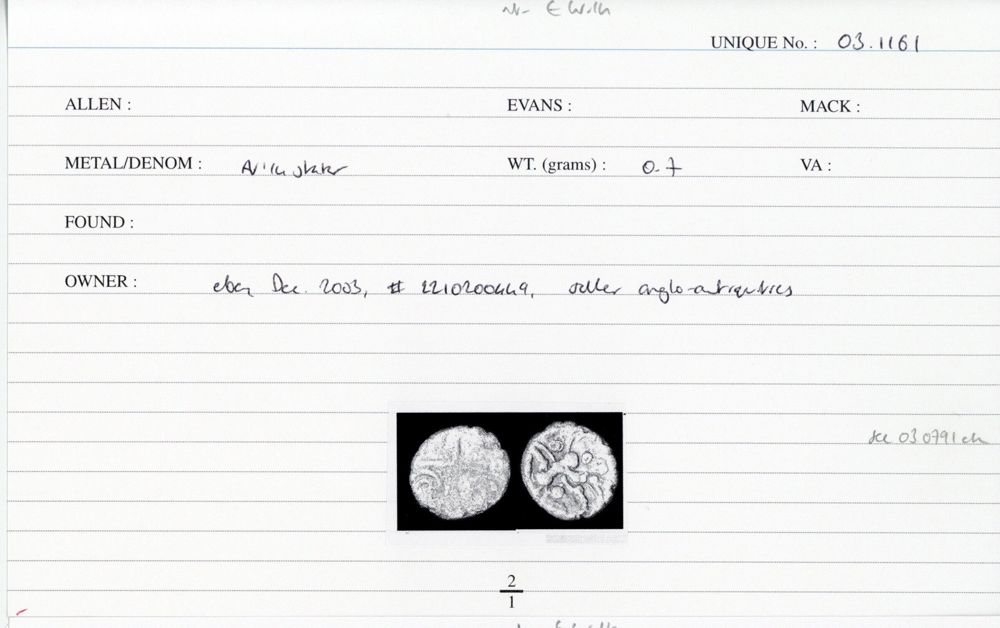 UNIQUE No. : 03.1161
ALLEN : EVANS : MACK :
METAL/DENOM : stater WT. (grams) : 0.7 VA :
FOUND :
OWNER : ebay Dec. 2003, # 2210200449, seller anglo-antiquities
see 03.0791 etc
2
1